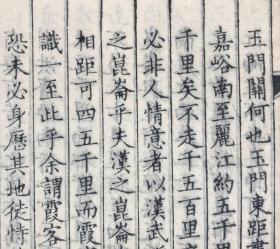 玉門關何也玉門東距
嘉峪南至麗江約五千里
千里矣不走千五百里
必非人情意者以漢武
之崑崙乎夫漢之崑崙
相距可四五千里而霞
識一至此乎余謂霞客
恐未必身歷其地徒恃